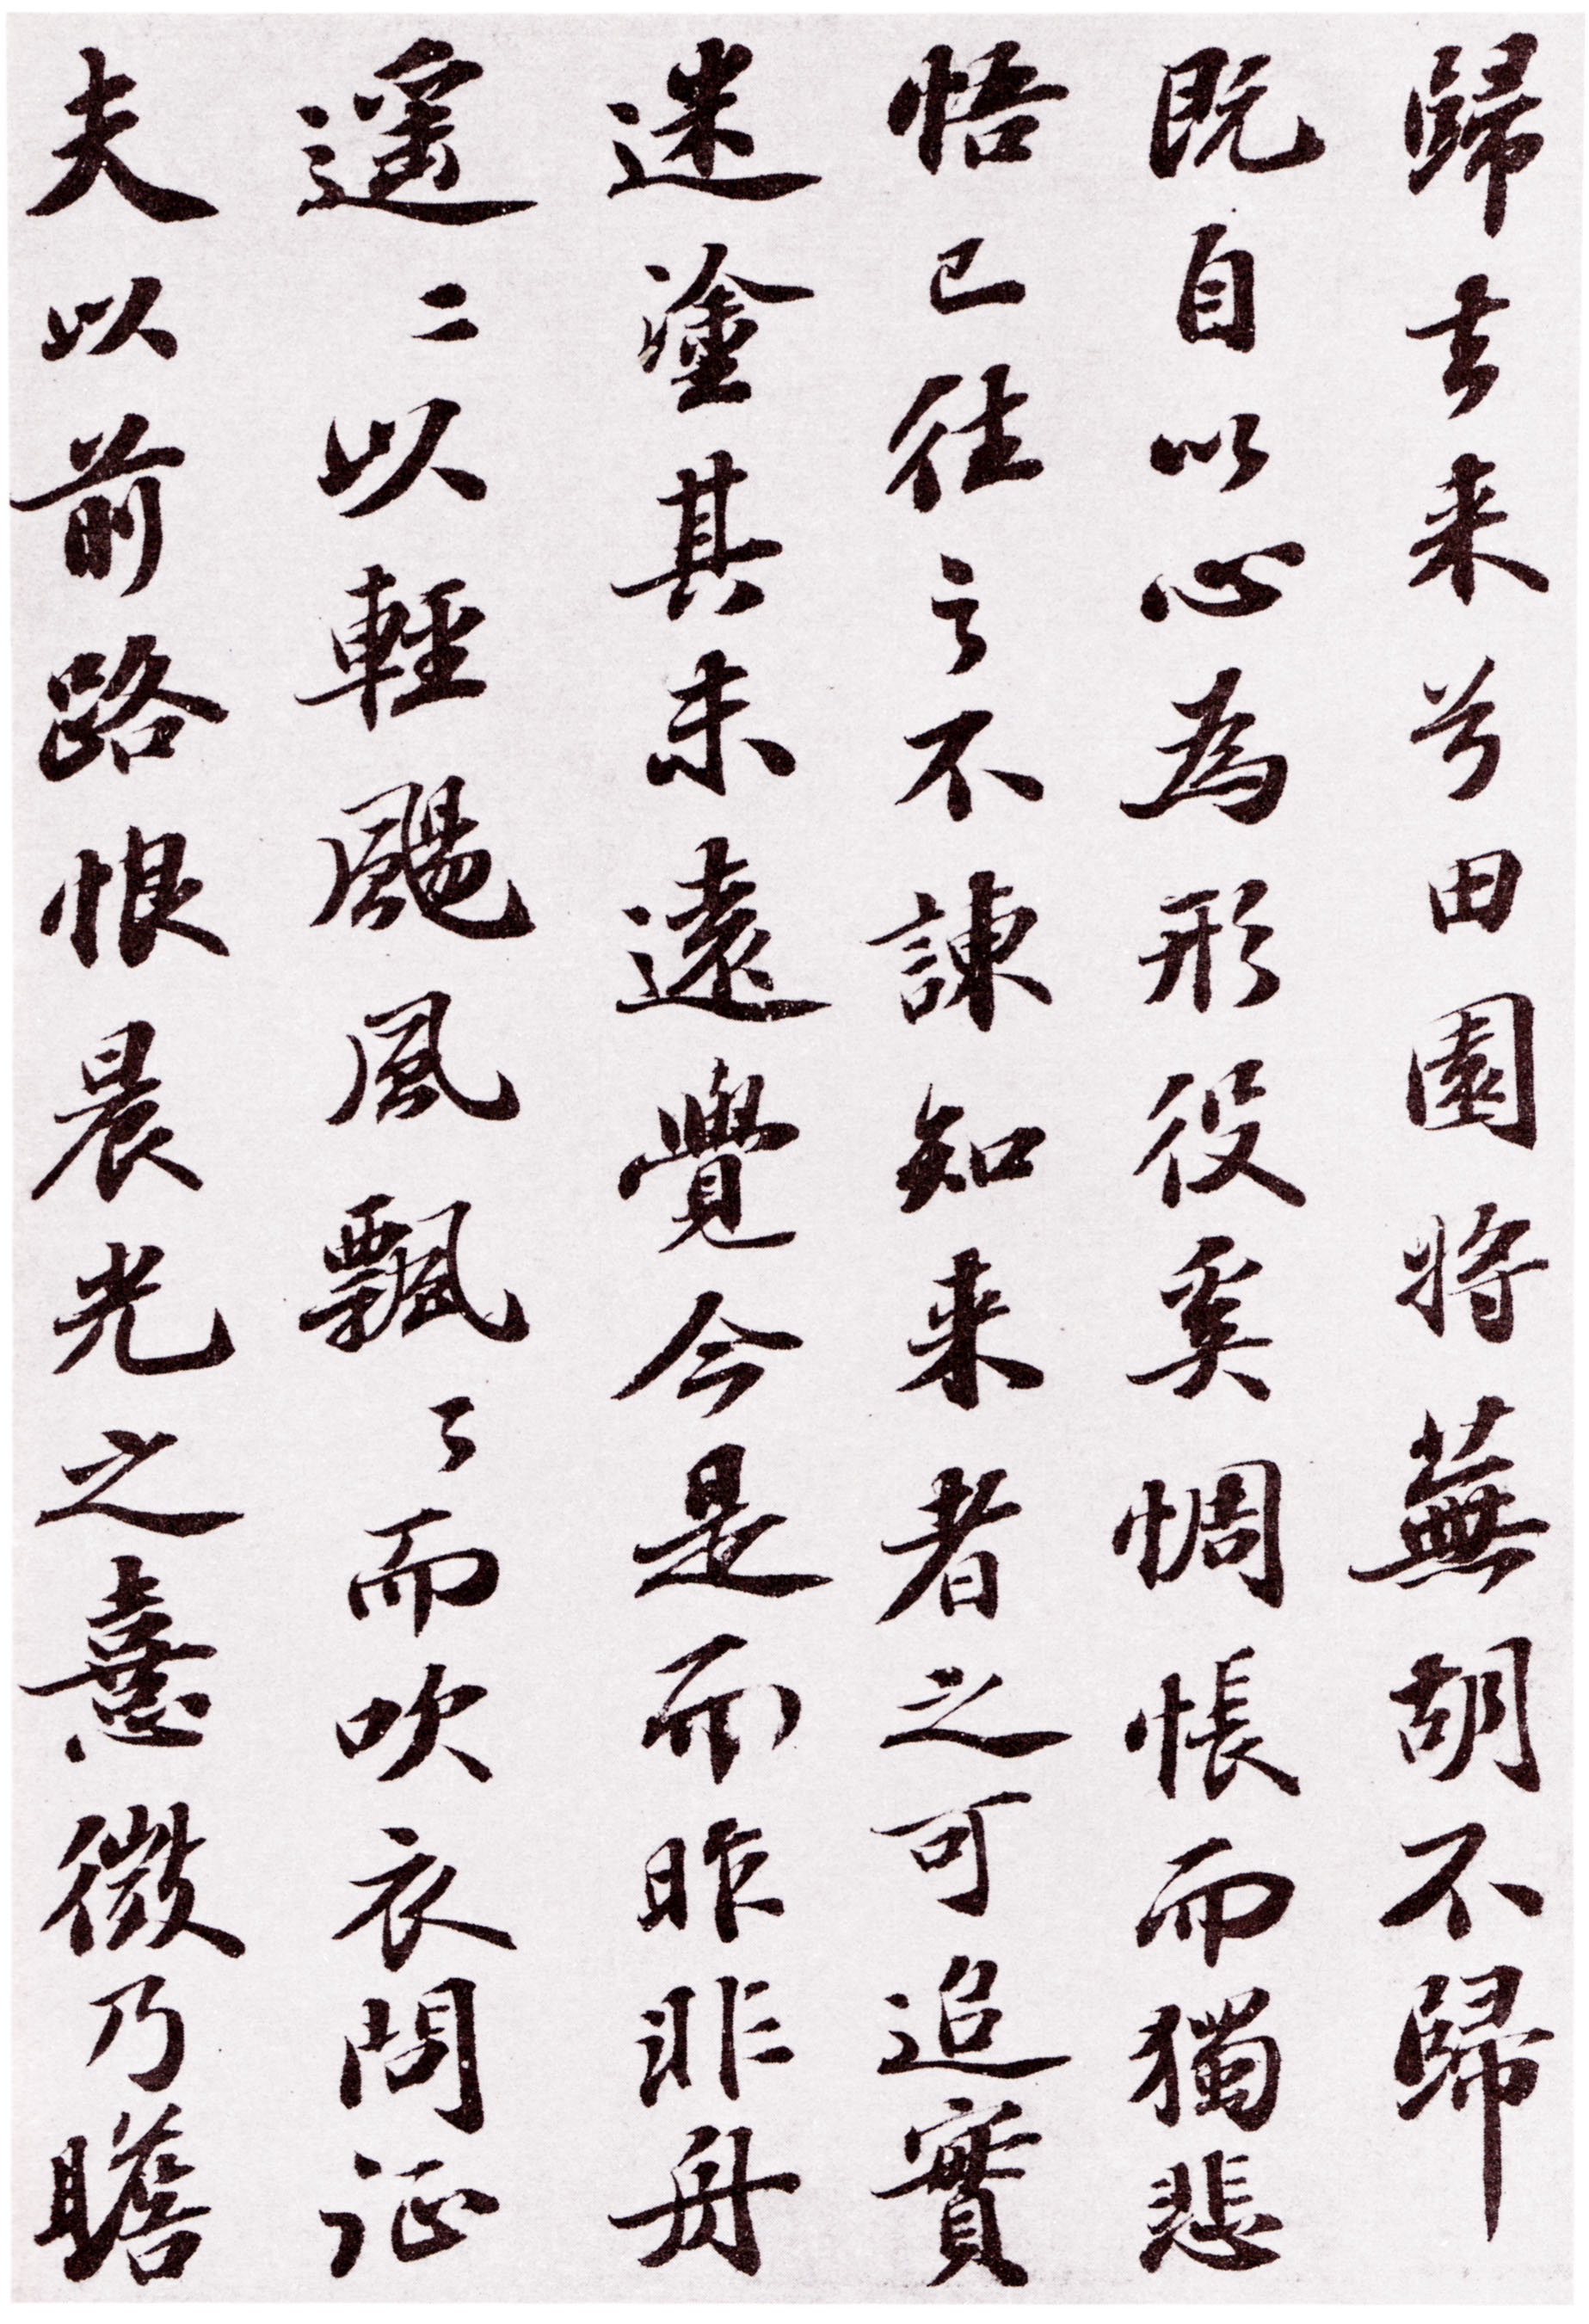 歸去来兮田園将蕪胡不歸
既自以心為形役奚惆悵而獨悲
悟已往之不諫知来者之可追實
迷塗其未遠覺今是而昨非舟
遥二以輕颺風飄々而吹衣問征
夫以前路恨晨光之熹微乃瞻